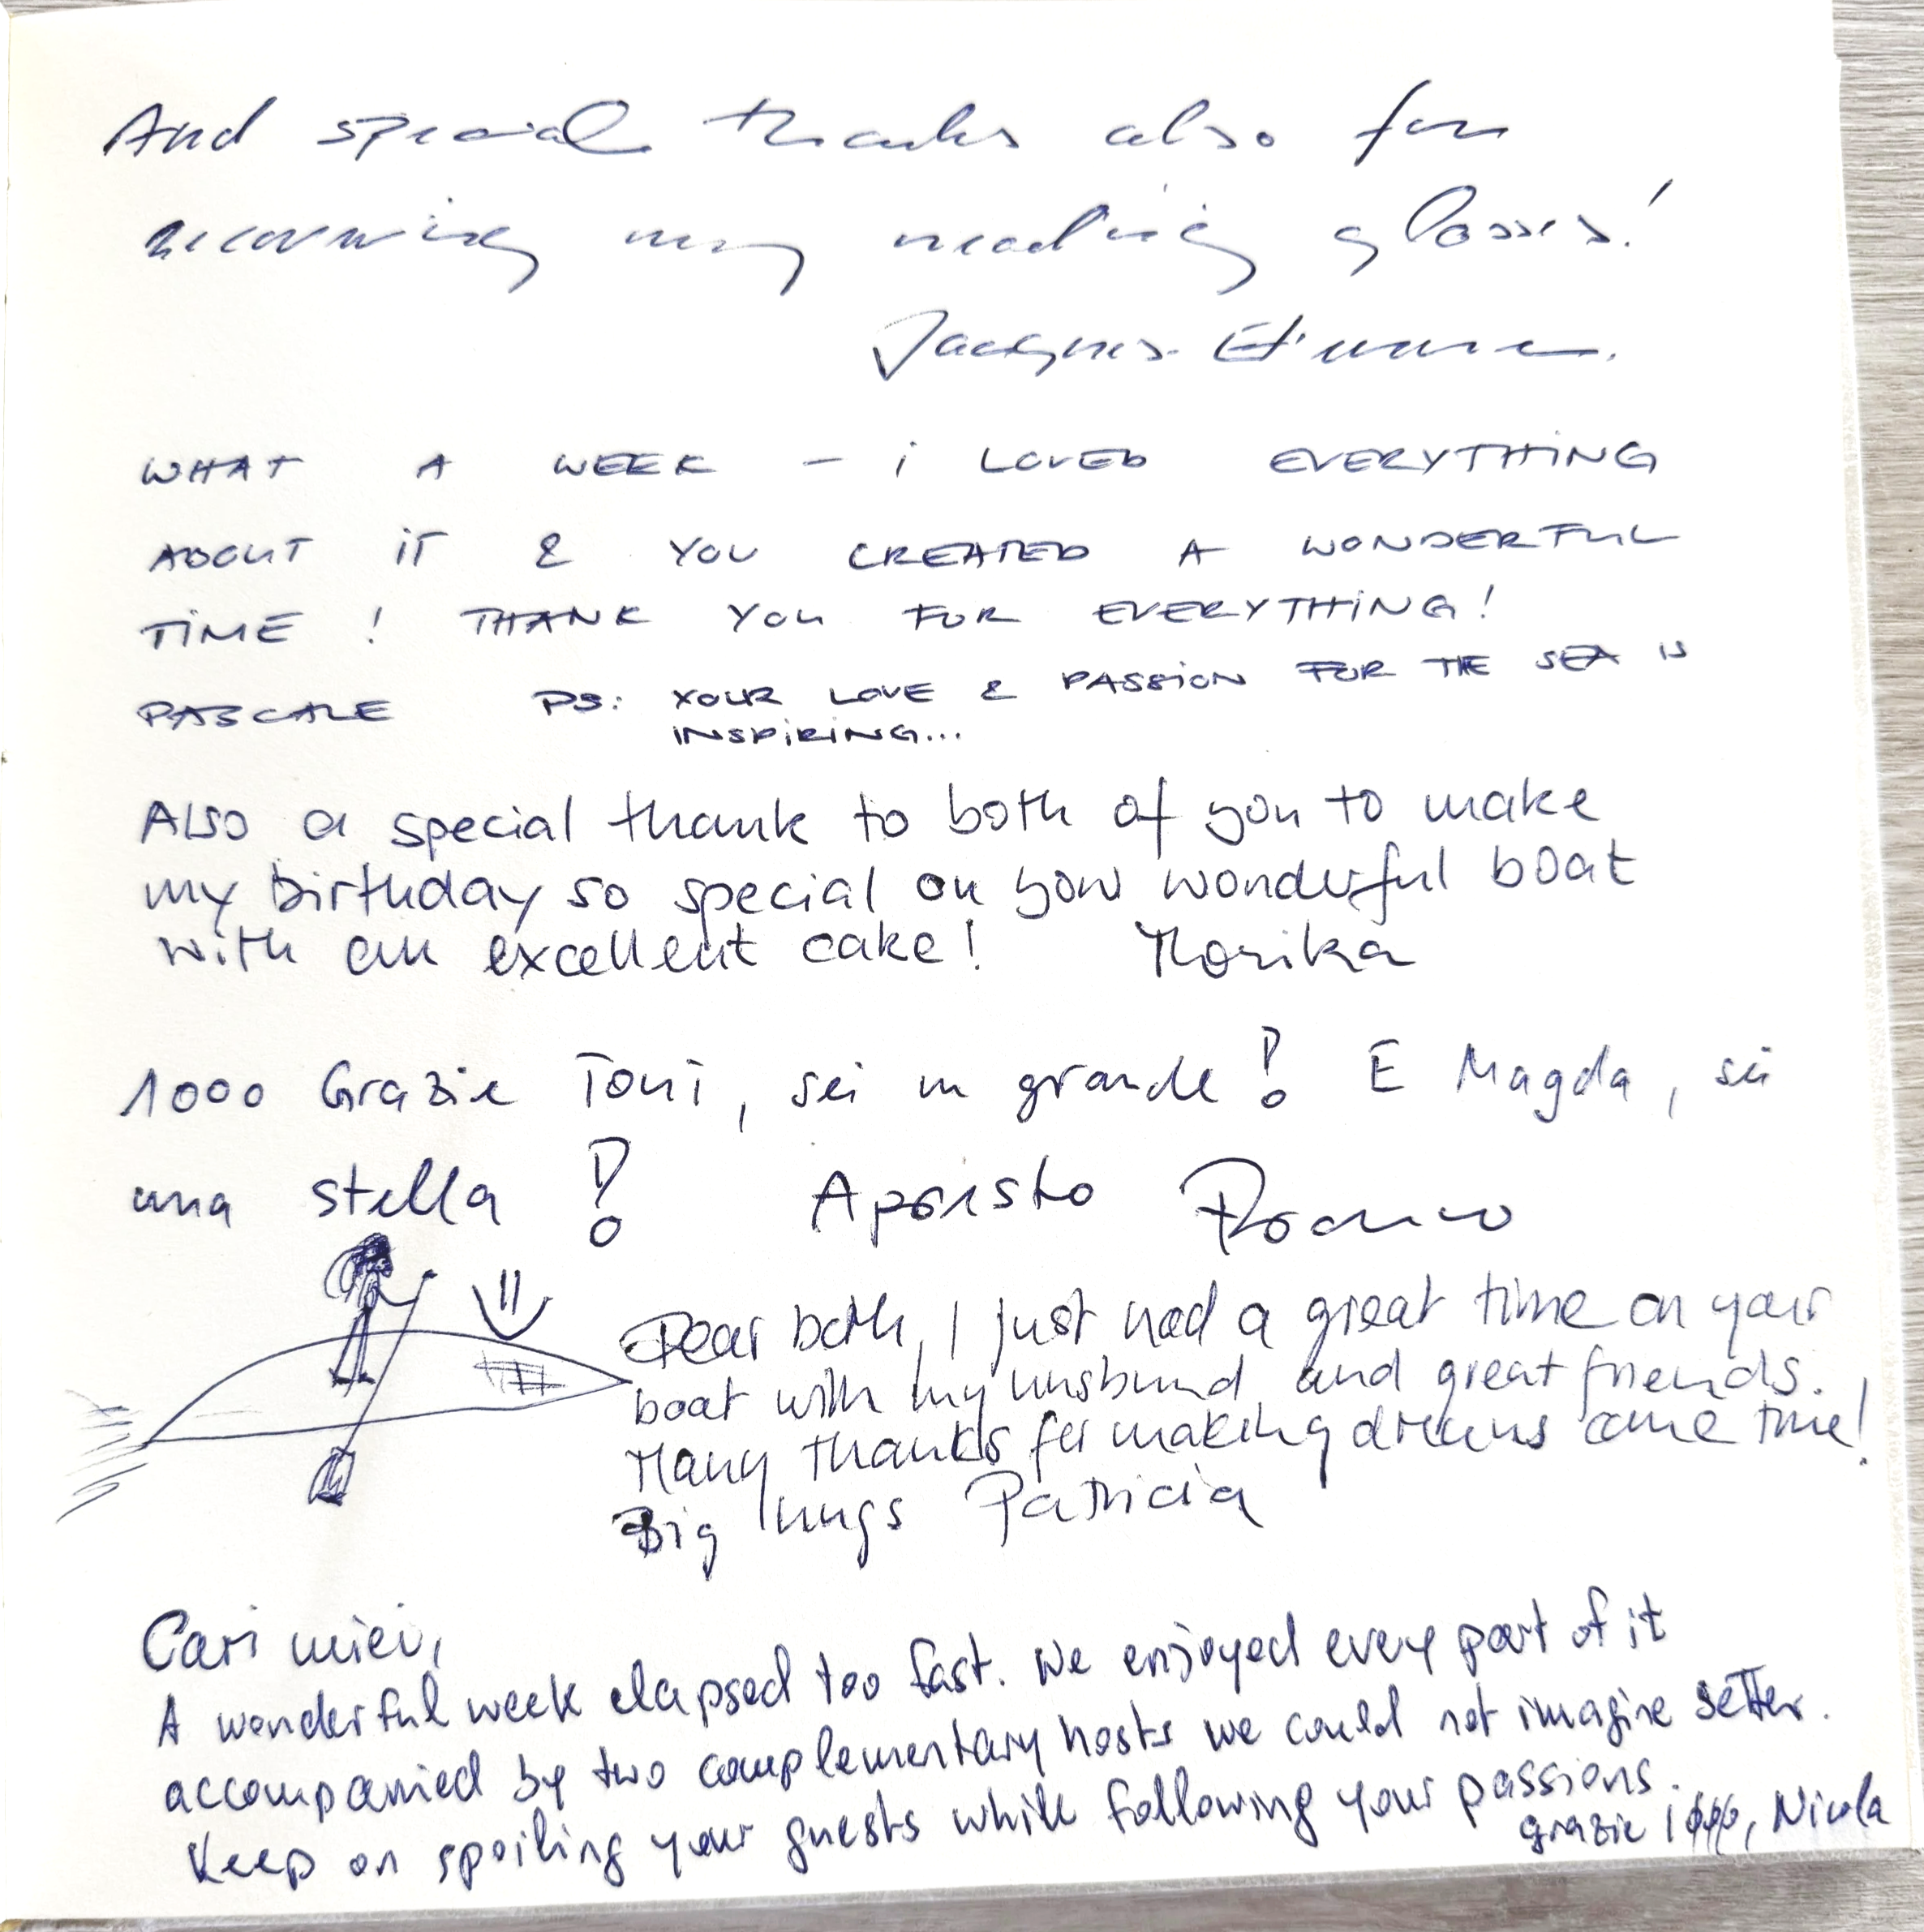 And special thanks also for
recovering my reading glasses!
Jacques-Etienne.
WHAT A WEEK – i LOVED EVERYTHiNG
ABOUT iT & YOU CREATED A WONDERFUL
TiME! THANK YOU FOR EVERYTHiNG!
PASCALE PS: YOUR LOVE & PASSiON FOR THE SEA iS
iNSPiRiNG...
Also a special thank to both of you to make
my Birthday so special on your wonderful boat
with an excellent cake! Monika
1000 Grazie Toni, sei un grande! E Magda, sei
una stella! Apristo Franco
Dear both, I just had a great time on your
boat with my husband and great friends.
Many thanks for making dreams come true!
Big hugs Patricia
Cari miei,
A wonderful week elapsed too fast. We enjoyed every part of it
accompanied by two complementary hosts we could not imagine better.
Keep on spoiling your guests while following your passions.
grazie 1000, Nicola